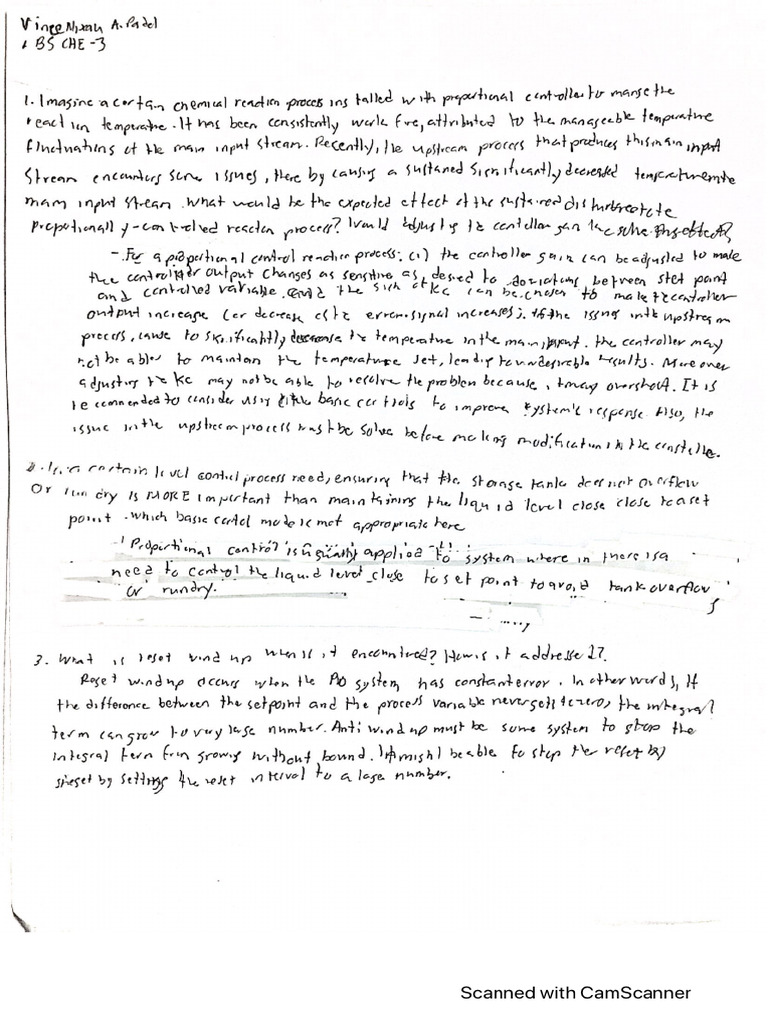 Vince Nixon A. Padol
BS CHE -3
1. Imagine a certain chemical reaction process ins talled with proportional controller to mange the
reaction temperature. It has been consistently work fine, attributed to the manageable temperature
fluctuations of the main input stream. Recently, the upstream process that produces this main input
stream encounters some issues, there by causing a sustained significantly decreased temperature in the
main input stream. What would be the expected effect of the sustained disturbance to the
proportionally-controlled reaction process? Would adjusting the controller gain
- For a proportional control reaction process: (1) the controller gain can be adjusted to make
the controller output changes as sensitive as desired to deviations between stet point
and controlled variable. and the sign of Kc can be chosen to make the controller
output increase (or decrease as the error signal increases); if the issues in the upstream
process, cause to significantly decrease the temperature in the main input. the controller may
not be able to maintain the temperature set, leading to undesirable results. More over
adjusting the Kc may not be able to resolve the problem because it may overshoot. It is
recommended to consider using basic controls to improve system's response Also, the
issue in the upstream process must be solve before making modification in the controller.
2. In a certain level control process need, ensuring that the storage tank does not overflow
Or run dry is MORE important than maintaining the liquid level close close to a set
point. which basic control mode is most appropriate here
Proportional control is usually applied to system where in there is a
need to control the liquid level close to set point to avoid tank overflow
or rundry.
3. What is reset wind up when is it encountered? How is it addressed?.
Reset windup occurs when the PID system has constant error. In other words, If
the difference between the setpoint and the process variable never gets to zero, the integral
term can grow to very large number. Anti wind up must be some system to stop the
integral term from growing without bound. It might be able to stop the reset by
by setting the reset interval to a large number.
Scanned with CamScanner